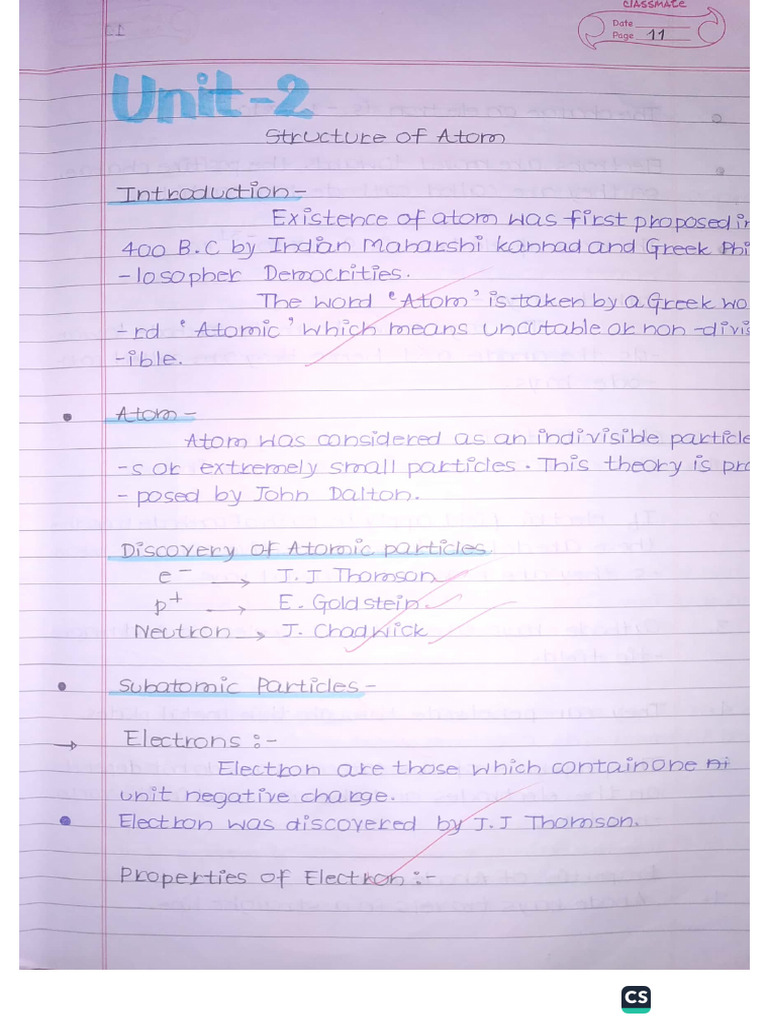 CLASSMATE
Date
Page 11
Unit-2
Structure of Atom
Introduction-
Existence of atom was first proposed in
400 B.C by Indian Maharshi kannad and Greek Phi
-losopher Democrities.
The word 'Atom' is taken by a Greek wo
-rd 'Atomic' which means uncutable or non-divis
-ible.
Atom-
Atom was considered as an indivisible particle
-s or extremely small particles. This theory is pro
-posed by John Dalton.
Discovery of Atomic particles.
e⁻ → J.J Thomson
p⁺ → E. Goldstein
Neutron → J. Chadwick
• Subatomic Particles-
→ Electrons :-
Electron are those which contain one ni
unit negative charge.
• Electron was discovered by J.J Thomson.
Properties of Electron :-
CS